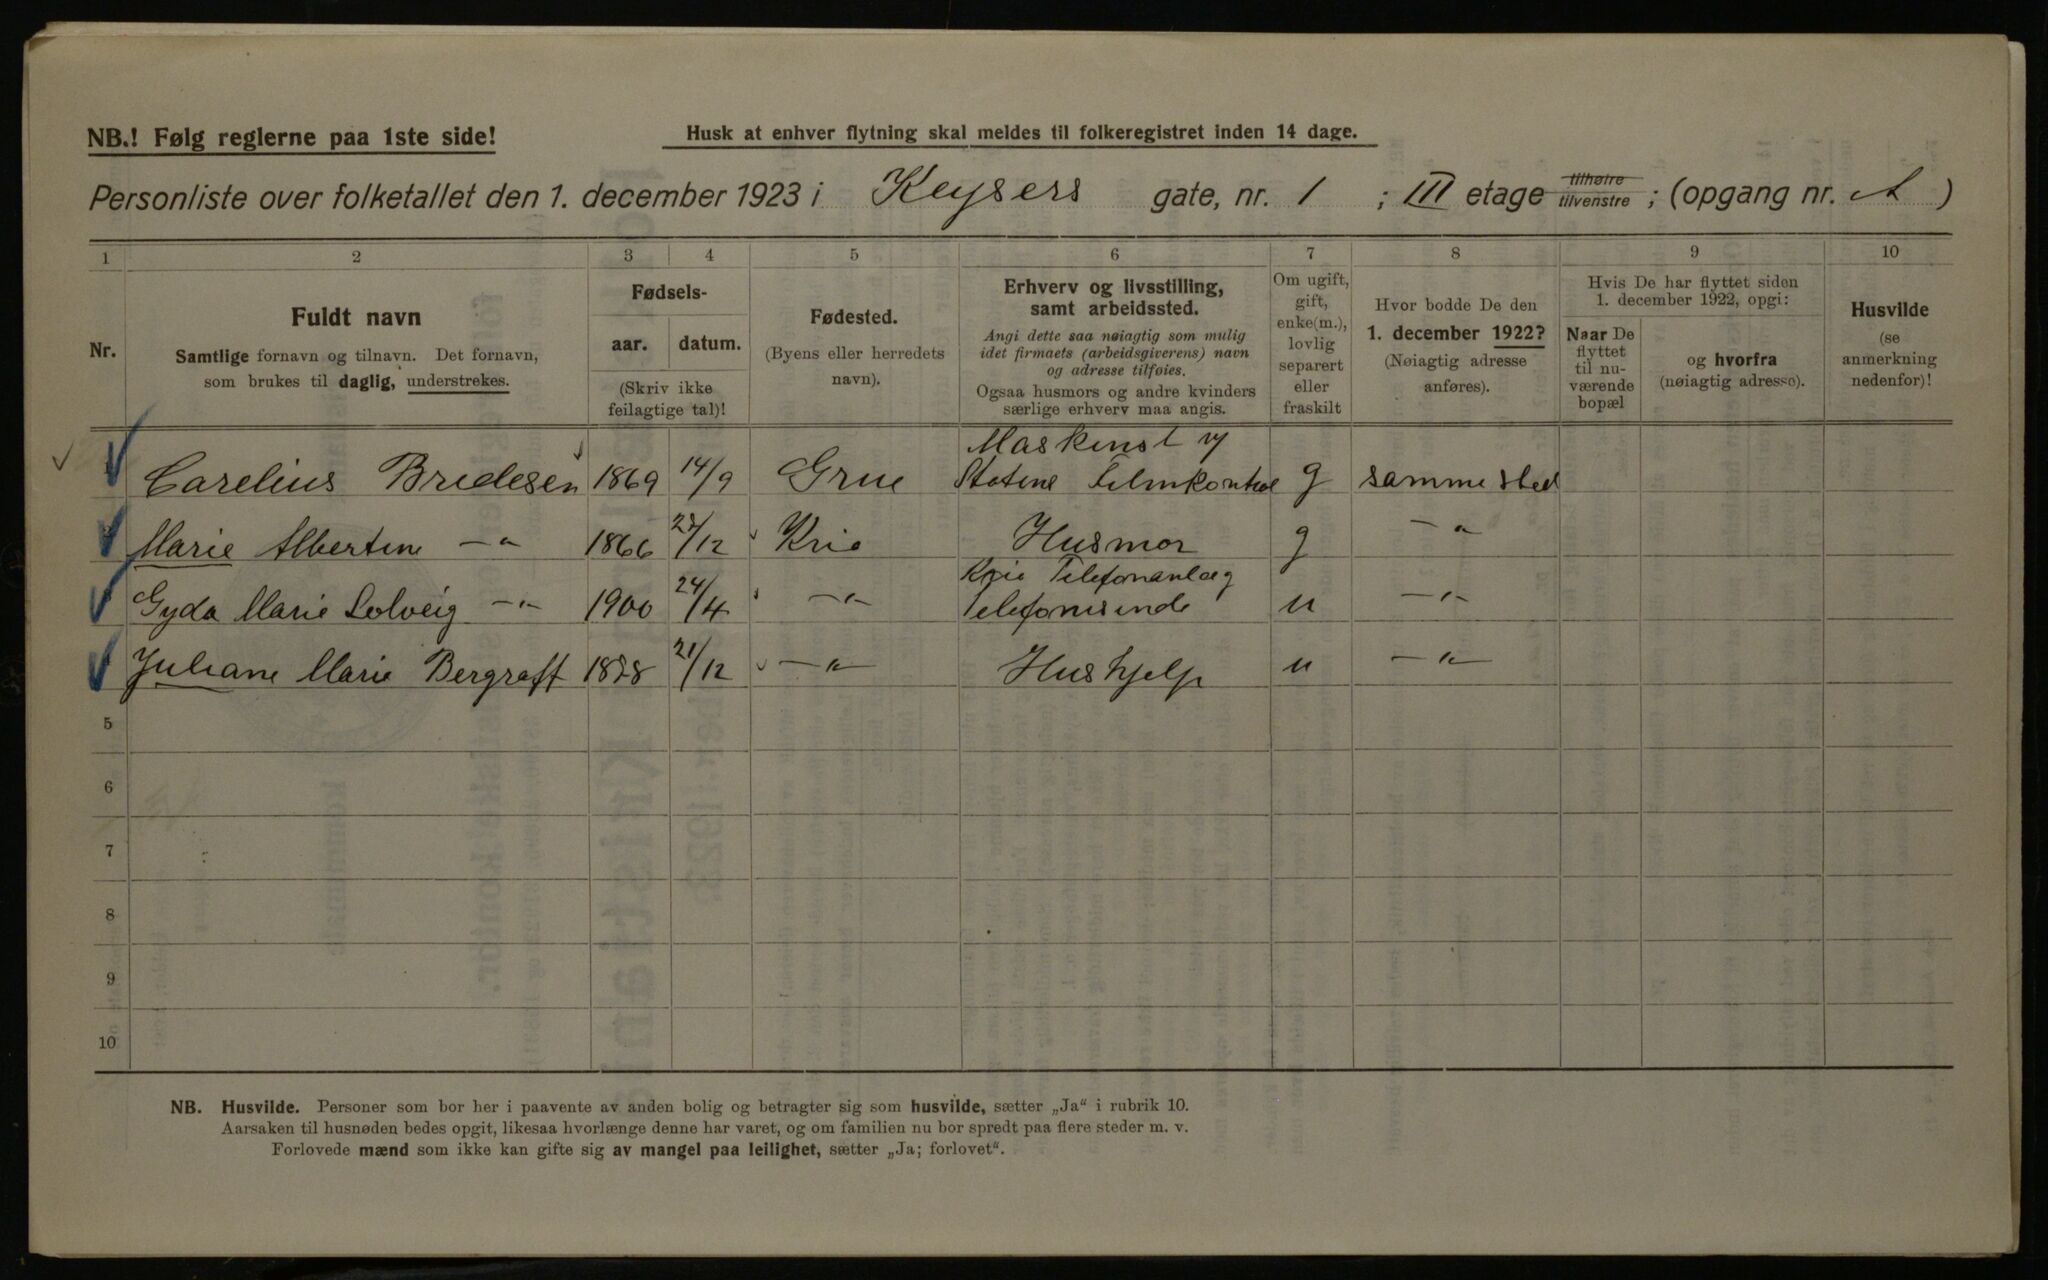 NB.! Følg reglerne paa 1ste side!
Husk at enhver flytning skal meldes til folkeregistret inden 14 dage.
Personliste over folketallet den 1. december 1923 i Keysers gate, nr. 1 ; III etage tilhøire tilvenstre ; (opgang nr. A )
1 2 3 4 5 6 7 8 9 10
Nr.
Fuldt navn
Samtlige fornavn og tilnavn. Det fornavn,
som brukes til daglig, understrekes.
Fødsels-
aar. datum.
(Skriv ikke
feilagtige tal)!
Fødested.
(Byens eller herredets
navn).
Erhverv og livsstilling,
samt arbeidssted.
Angi dette saa nøiagtig som mulig
idet firmaets (arbeidsgiverens) navn
og adresse tilføies.
Ogsaa husmors og andre kvinders
særlige erhverv maa angis.
Om ugift,
gift,
enke(m.),
lovlig
separert
eller
fraskilt
Hvor bodde De den
1. december 1922?
(Nøiagtig adresse
anføres).
Hvis De har flyttet siden
1. december 1922, opgi:
Naar De
flyttet
til nu-
værende
bopæl
og hvorfra
(nøiagtig adresse).
Husvilde
(se
anmerkning
nedenfor)!
Maskinst v/
Carelius Bredesen 1869 14/9 Grue Statens Filmkontrol g samme sted
Marie Albertine —"— 1866 /12 Kria Husmor g —"—
Kria Telefonanlæg
Gyda Marie Solveig —"— 1900 24/4 —"— Telefonistinde u —"—
Juliane Marie Bergraff 1878 21/12 —"— Hushjelp u —"—
5
6
7
8
9
10
NB. Husvilde. Personer som bor her i paavente av anden bolig og betragter sig som husvilde, sætter „Ja“ i rubrik 10.
Aarsaken til husnøden bedes opgit, likesaa hvorlænge denne har varet, og om familien nu bor spredt paa flere steder m. v.
Forlovede mænd som ikke kan gifte sig av mangel paa leilighet, sætter „Ja; forlovet“.